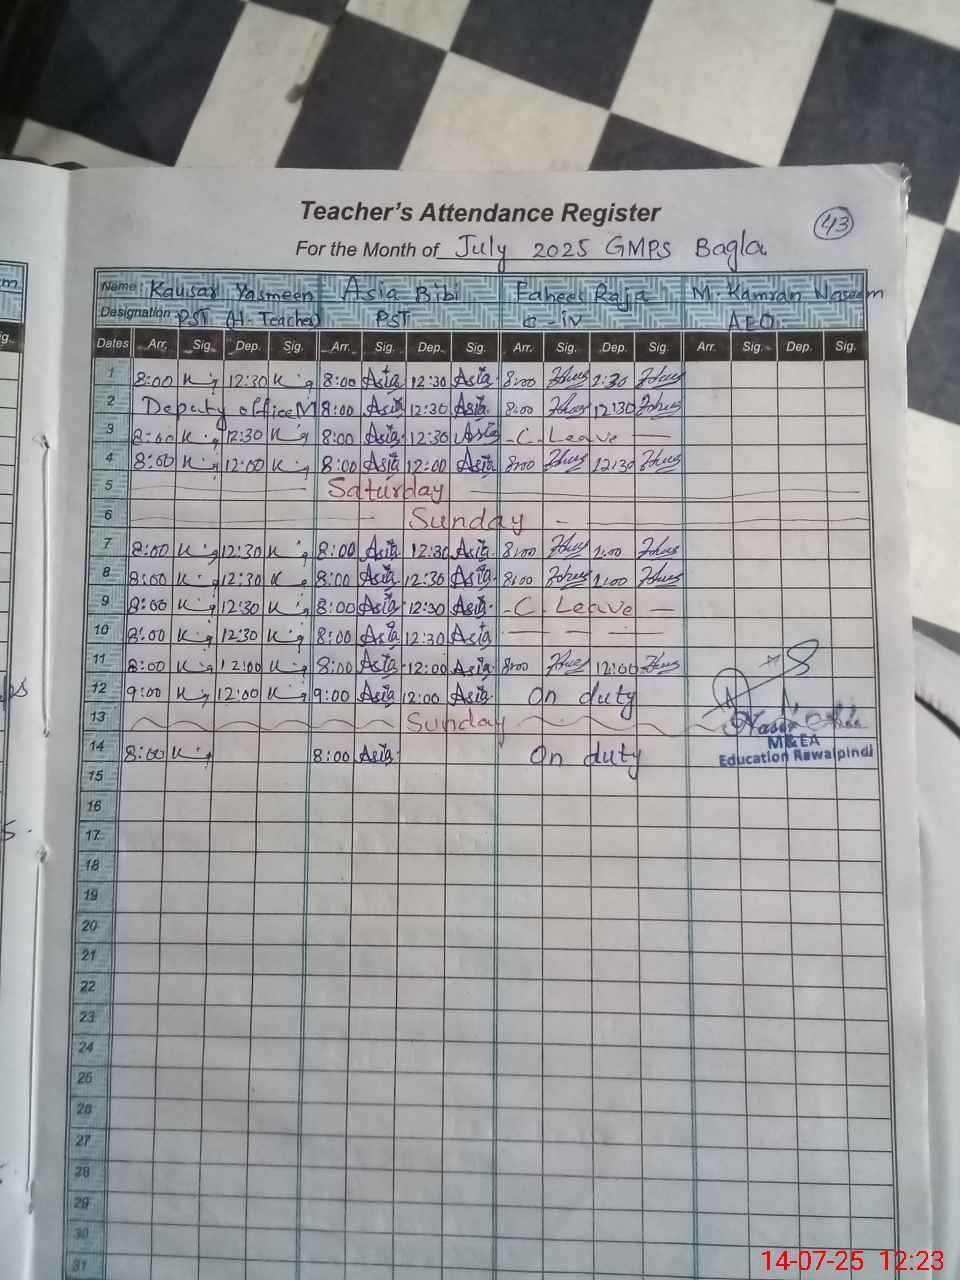 Teacher's Attendance Register
43
For the Month of July 2025 GMPS Bagla
Name: Kausar Yasmeen Asia Bibi Faheed Raja M. Kamran Naseem
Designation: PST (H. Teacher) PST C-iv AEO
Dates Arr. Sig. Dep. Sig. Arr. Sig. Dep. Sig. Arr. Sig. Dep. Sig. Arr. Sig. Dep. Sig.
1 8:00 12:30 8:00 Asia 12:30 Asia 8:00
2 Deputy office M 8:00 Asia 12:30 Asia 8:00 12:30
3 8:00 12:30 8:00 Asia 12:30 Asia C. Leave
4 8:00 12:00 8:00 Asia 12:00 Asia 8:00 12:30
5 Saturday
6 Sunday
7 8:00 12:30 8:00 Asia 12:30 Asia 8:00 1:00
8 8:00 12:30 8:00 Asia 12:30 Asia 8:00 1:00
9 8:00 12:30 8:00 Asia 12:30 Asia C. Leave
10 8:00 12:30 8:00 Asia 12:30 Asia
11 8:00 12:00 8:00 Asia 12:00 Asia 8:00 12:00
12 9:00 12:00 9:00 Asia 12:00 Asia On duty
13 Sunday
M&EA
Education Rawalpindi
14 8:00 8:00 Asia On duty
15
16
17
18
19
20
21
22
23
24
25
26
27
28
29
30
31
14-07-25 12:23